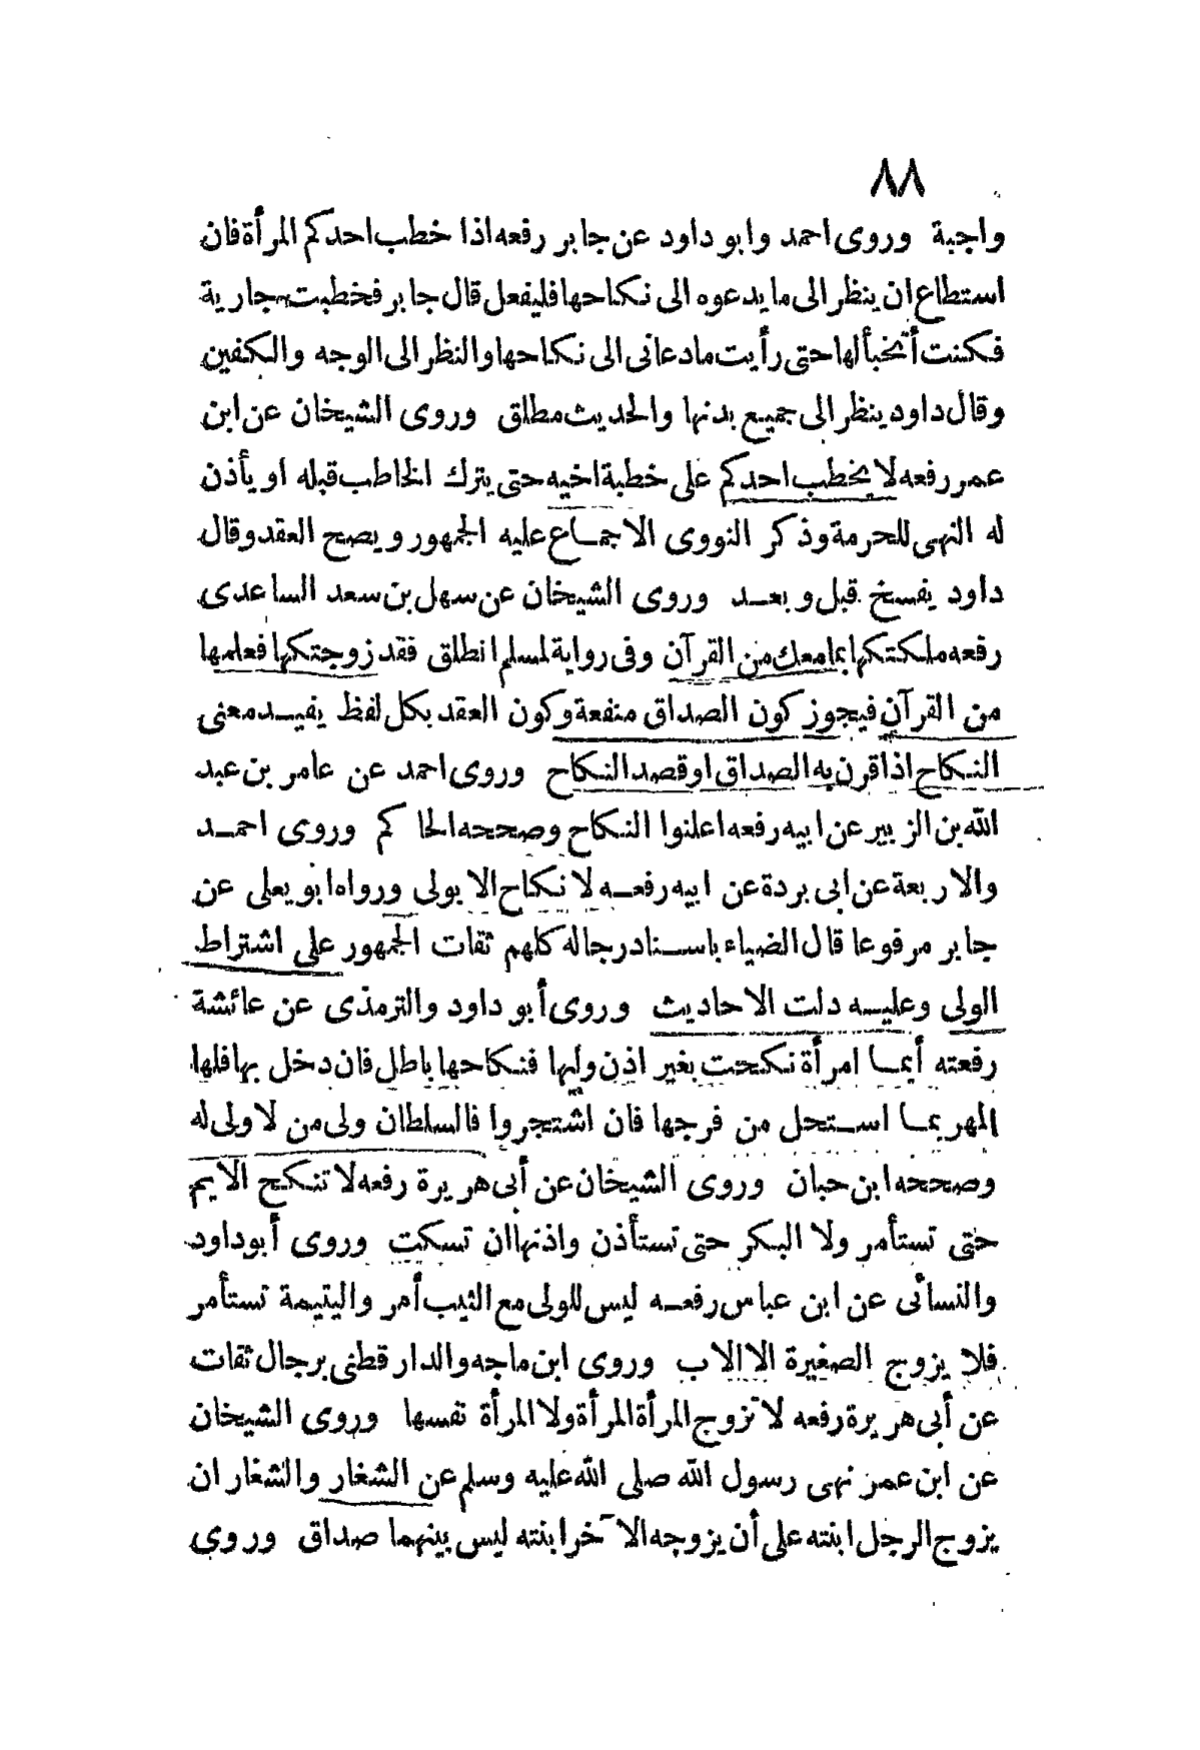 ٨٨
واجبة وروى احمد وابو داود عن جابر رفعه اذا خطب احدكم المرأة فان
استطاع ان ينظر الى ما يدعوه الى نكاحها فليفعل قال جابر فخطبت جارية
فكنت أتخبأ لها حتى رأيت ما دعانى الى نكاحها والنظر الى الوجه والكفين
وقال داود ينظر الى جميع بدنها والحديث مطلق وروى الشيخان عن ابن
عمر رفعه لا يخطب احدكم على خطبة اخيه حتى يترك الخاطب قبله او يأذن
له النهى للحرمة وذكر النووى الاجماع عليه الجمهور ويصح العقد وقال
داود يفسخ قبل وبعد وروى الشيخان عن سهل بن سعد الساعدى
رفعه ملكتكها بما معك من القرآن وفى رواية لمسلم انطلق فقد زوجتكها فعلمها
من القرآن فيجوز كون الصداق منفعة وكون العقد بكل لفظ يفيد معنى
النكاح اذا قرن به الصداق او قصد النكاح وروى احمد عن عامر بن عبد
الله بن الزبير عن ابيه رفعه اعلنوا النكاح وصححه الحاكم وروى احمد
والاربعة عن ابى بردة عن ابيه رفعه لا نكاح الا بولى ورواه ابو يعلى عن
جابر مرفوعا قال الضياء باسناد رجاله كلهم ثقات الجمهور على اشتراط
الولى وعليه دلت الاحاديث وروى أبو داود والترمذى عن عائشة
رفعته أيما امرأة نكحت بغير اذن وليها فنكاحها باطل فان دخل بها فلها
المهر بما استحل من فرجها فان اشتجروا فالسلطان ولى من لا ولى له
وصححه ابن حبان وروى الشيخان عن أبى هريرة رفعه لا تنكح الايم
حتى تستأمر ولا البكر حتى تستأذن واذنها ان تسكت وروى أبو داود
والنسائى عن ابن عباس رفعه ليس للولى مع الثيب أمر واليتيمة تستأمر
فلا يزوج الصغيرة الا الاب وروى ابن ماجه والدارقطنى برجال ثقات
عن أبى هريرة رفعه لا تزوج المرأة المرأة ولا المرأة نفسها وروى الشيخان
عن ابن عمر نهى رسول الله صلى الله عليه وسلم عن الشغار والشغار ان
يزوج الرجل ابنته على أن يزوجه الآخر ابنته ليس بينهما صداق وروى